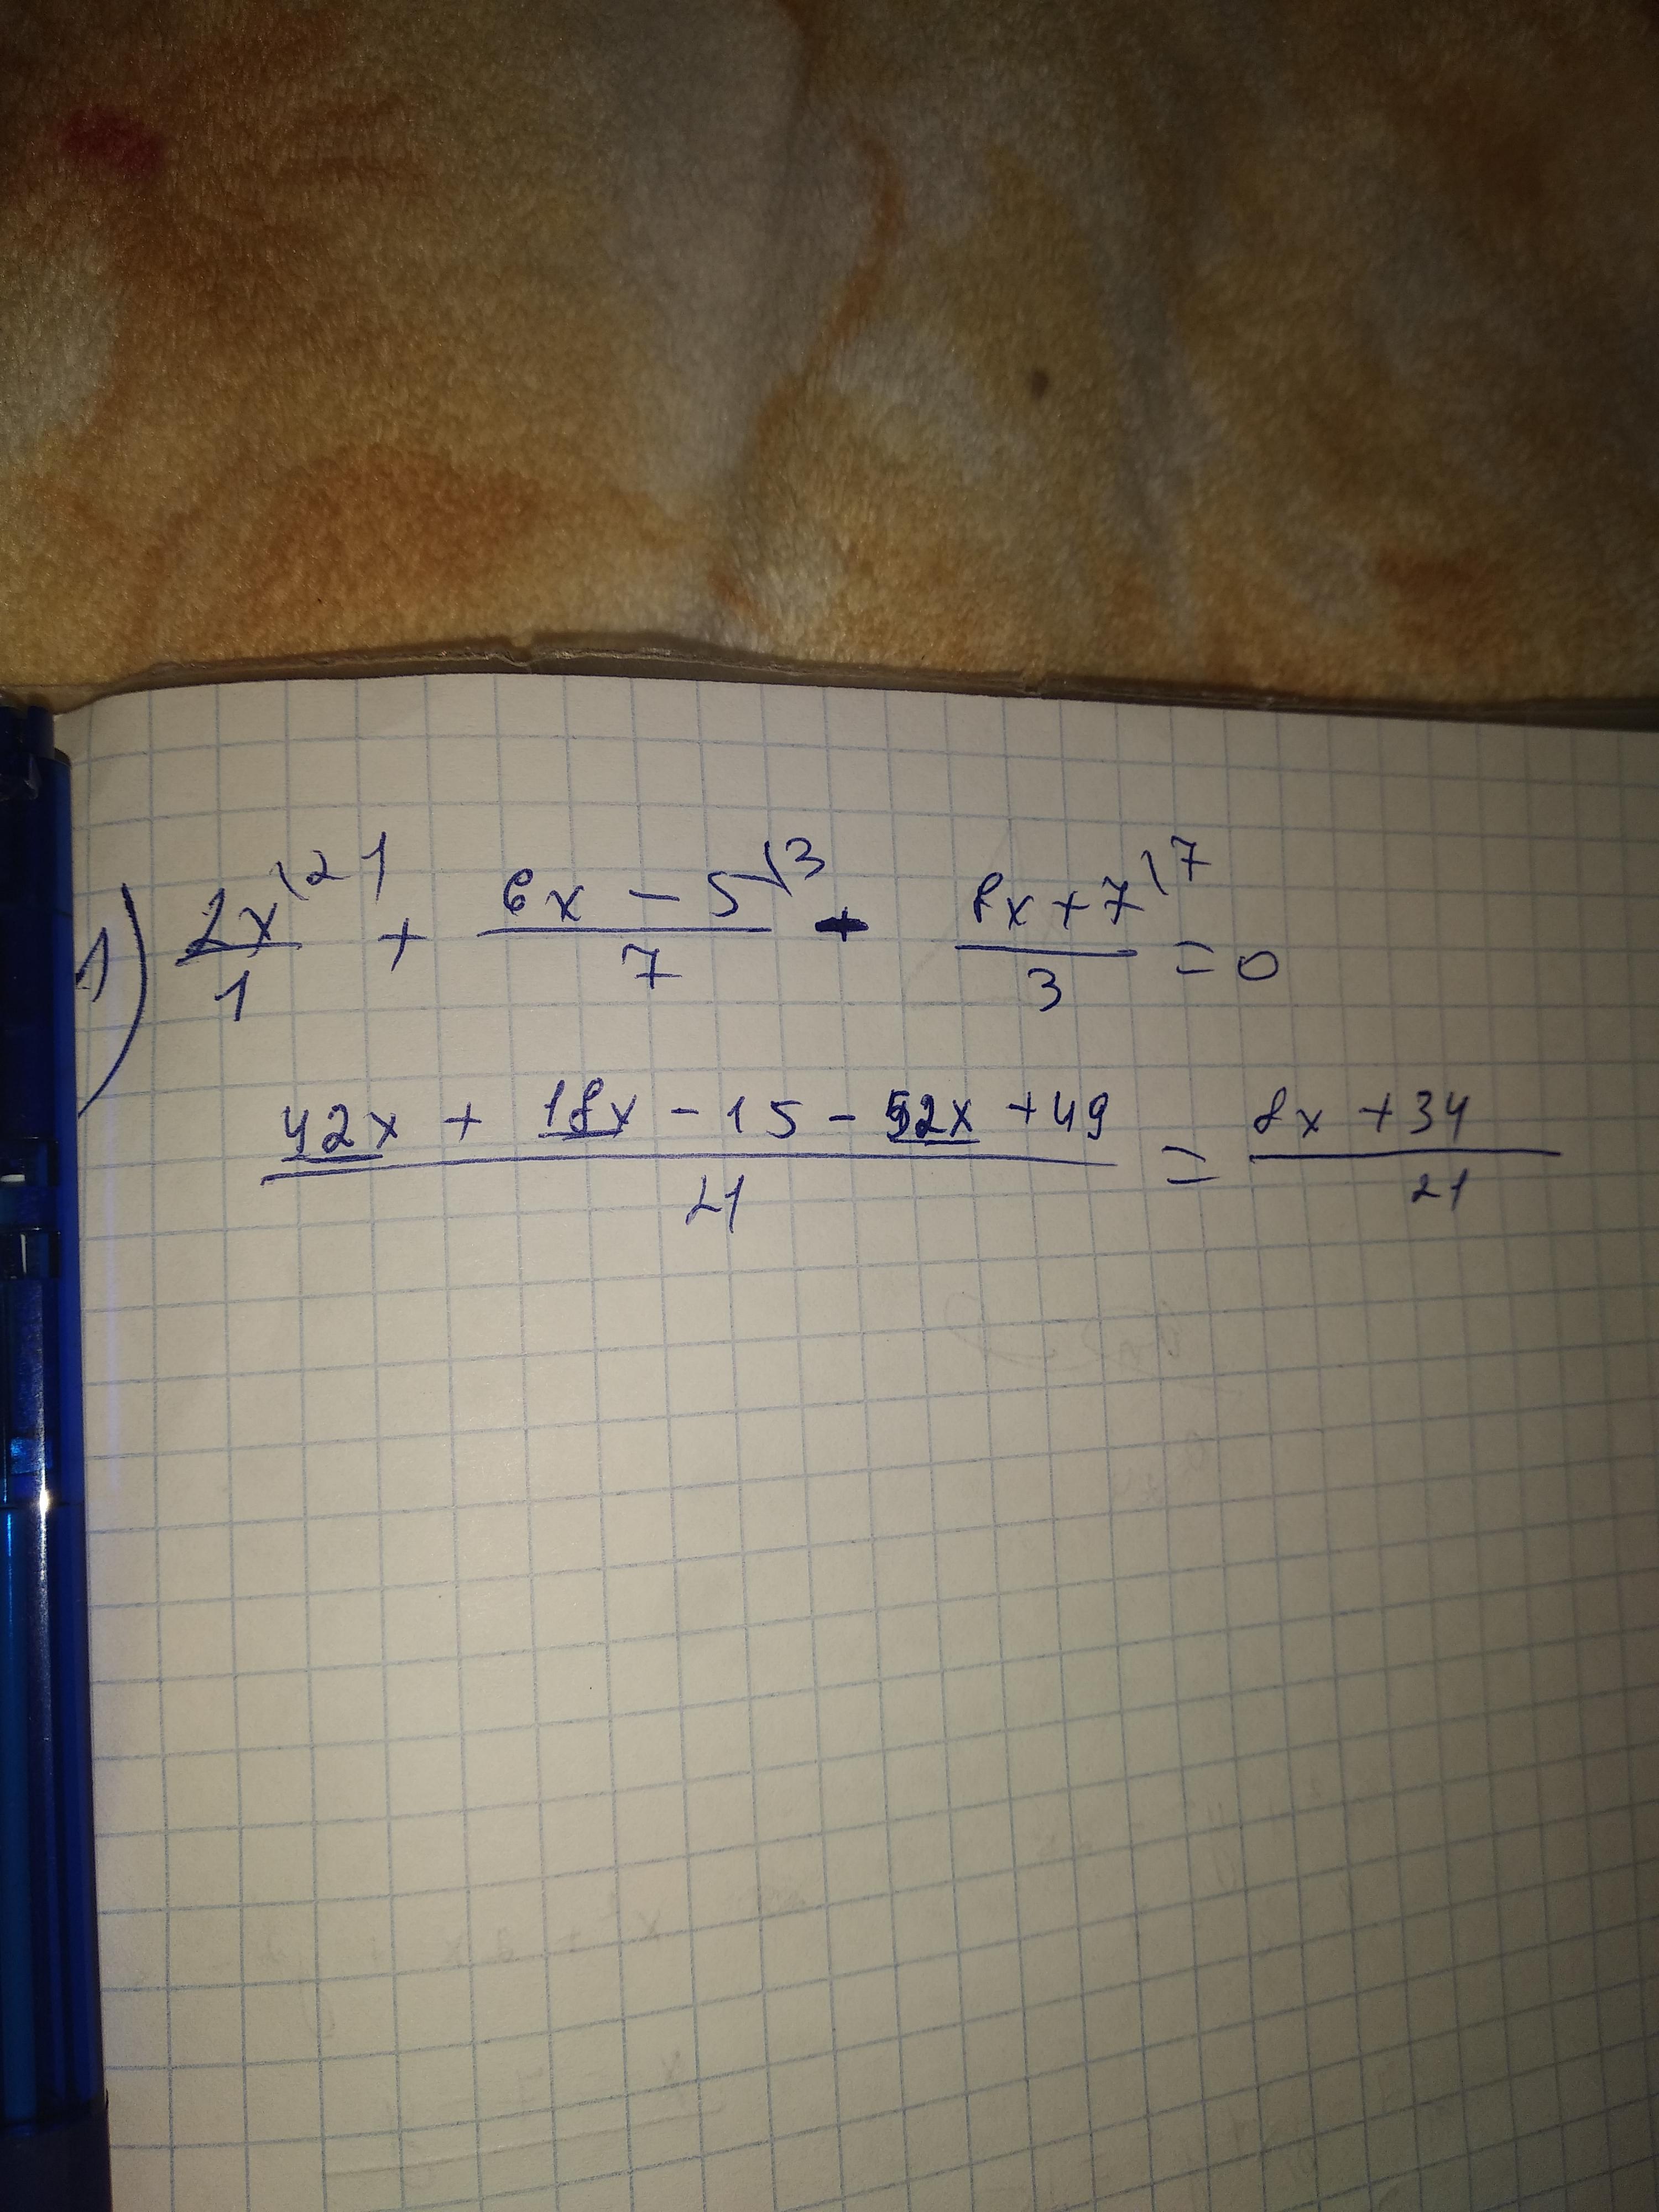 1) 2x\21/1 + 6x - 5\3/7 - 8x + 7\7/3 = 0
42x + 18x - 15 - 52x + 49/21 = 8x + 34/21